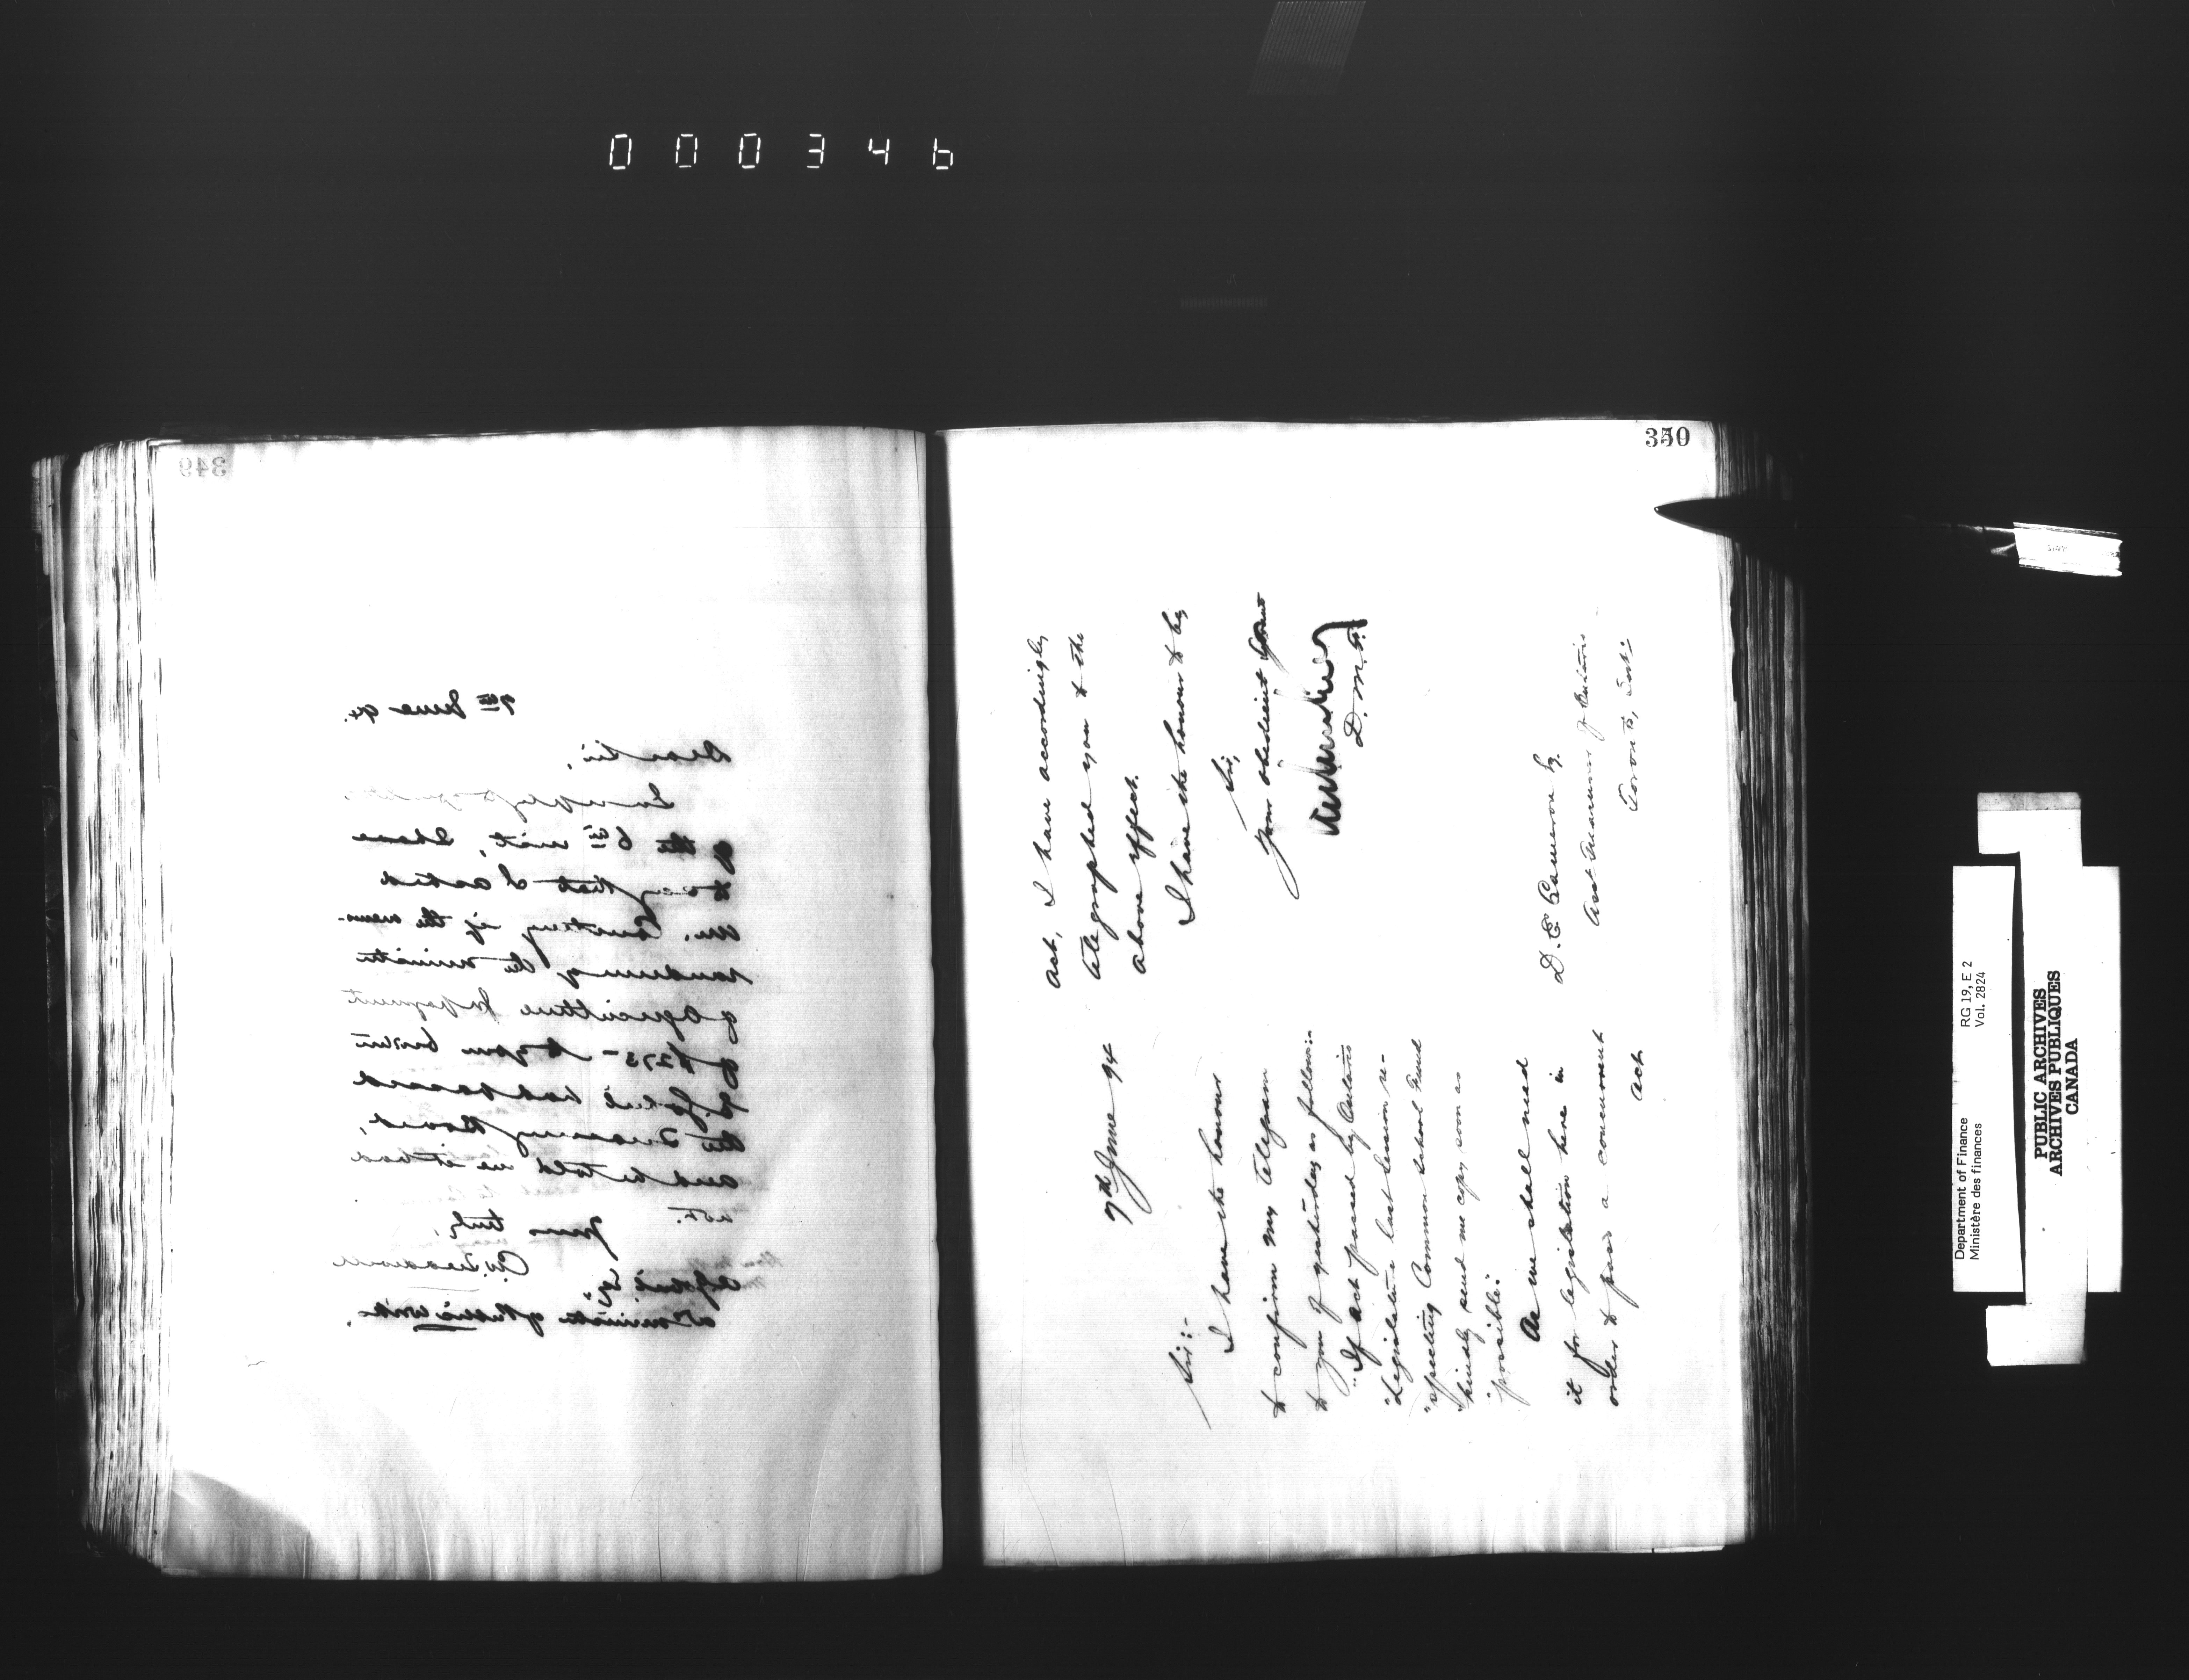 000346
349
7th June 94.
Dear Sir,
In reply to yours
of the 6th inst. I have
to say that I asked
Mr. Courtney if the memo-
randum of the minister
of Agriculture for payment
of $275 - to your
had passed
the Treasury Board,
and he told me it had
not.
Yours truly,
minister of Public Works.
350
7th June 94
Sir:-
I have the honour
to confirm my telegram
to you of yesterday as follows:-
"If act passed by Ontario
"Legislature last session re-
"specting Common School Fund
"kindly send me copy soon as
"possible."
As we shall need
it for legislation here in
order to pass a concurrent
act
act, I have accordingly
telegraphed you to the
above effect.
I have the honour to be,
Sir,
Your obedient Servant
D. M. F.
D. E. Cameron Esq.
Asst Treasurer of Ontario
Toronto, Ont:-
Department of Finance
Ministère des finances
RG 19, E 2
Vol. 2824
PUBLIC ARCHIVES
ARCHIVES PUBLIQUES
CANADA